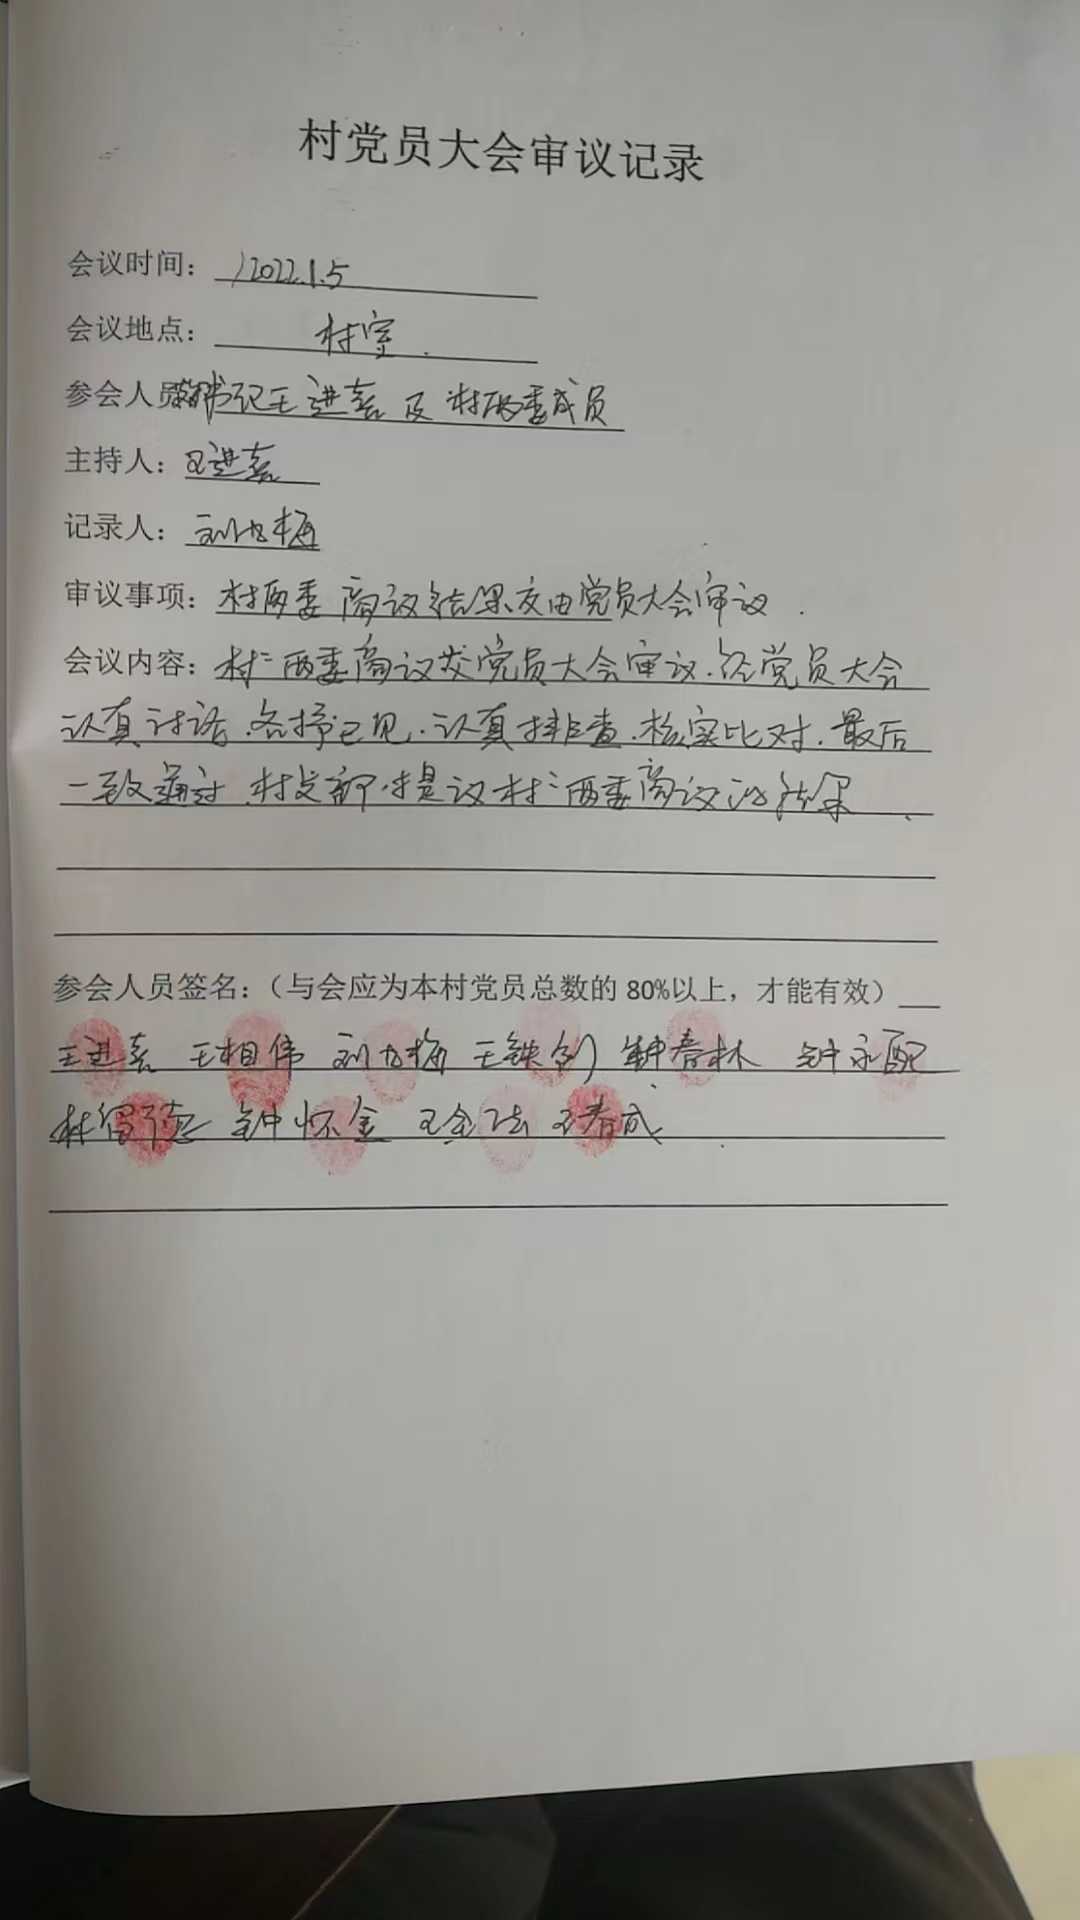 村党员大会审议记录
会议时间：2022.1.5
会议地点：村室.
参会人员：书记王进喜及村两委成员
主持人：王进喜
记录人：刘梅
审议事项：村两委商议结果交由党员大会审议.
会议内容：村两委商议交党员大会审议.经党员大会
认真讨论.各抒己见.认真排查.核实比对.最后
一致通过村支部提议村两委商议的结果.
参会人员签名：（与会应为本村党员总数的 80%以上，才能有效）
王进喜 王相伟 刘梅 王铁剑 钟春林 钟永配
林德 钟怀金 王金法 王春成